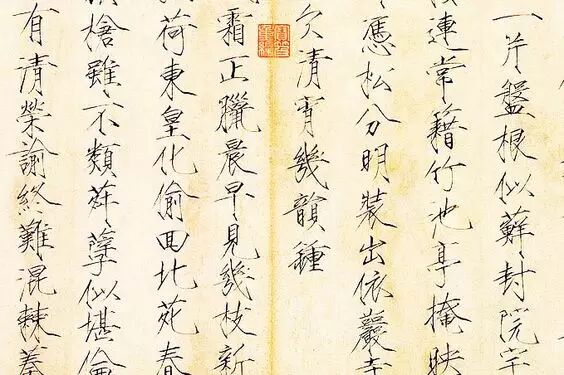 一 盤根似蘚封院宇
連常籍竹池亭掩映
憑松分明裝出依巖寺
欠清宵幾韻鍾
霜正臘晨早見幾枝新
荷東皇化偷回北苑春
槍雖不類 孽似堪倫
有清榮諭終難混棘蓁